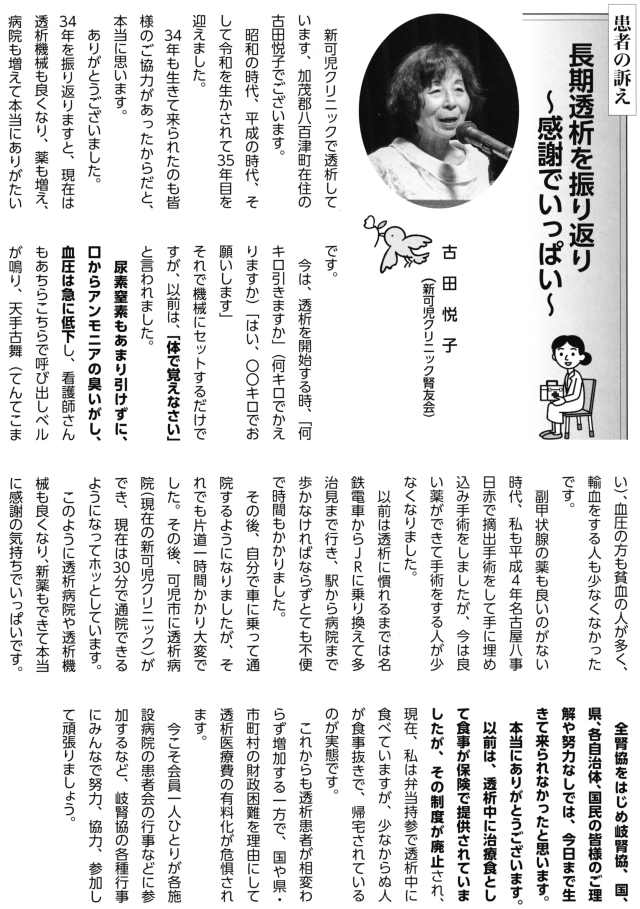 患者の訴え
長期透析を振り返り
～感謝でいっぱい～
古田悦子
（新可児クリニック腎友会）
新可児クリニックで透析して
います、加茂郡八百津町在住の
古田悦子でございます。
昭和の時代、平成の時代、そ
して令和を生かされて35年目を
迎えました。
34年も生きて来られたのも皆
様のご協力があったからだと、
本当に思います。
ありがとうございました。
34年を振り返りますと、現在は
透析機械も良くなり、薬も増え、
病院も増えて本当にありがたい
です。
今は、透析を開始する時、「何
キロ引きますか」（何キロでかえ
りますか）「はい、〇〇キロでお
願いします」
それで機械にセットするだけで
すが、以前は、「体で覚えなさい」
と言われました。
尿素窒素もあまり引けずに、
口からアンモニアの臭いがし、
血圧は急に低下し、看護師さん
もあちらこちらで呼び出しベル
が鳴り、天手古舞（てんてこま
い）、血圧の方も貧血の人が多く、
輸血をする人も少なくなかった
です。
副甲状腺の薬も良いのがない
時代、私も平成４年名古屋八事
日赤で摘出手術をして手に埋め
込み手術をしましたが、今は良
い薬ができて手術をする人が少
なくなりました。
以前は透析に慣れるまでは名
鉄電車からＪＲに乗り換えて多
治見まで行き、駅から病院まで
歩かなければならずとても不便
で時間もかかりました。
その後、自分で車に乗って通
院するようになりましたが、そ
れでも片道一時間かかり大変で
した。その後、可児市に透析病
院（現在の新可児クリニック）が
でき、現在は30分で通院できる
ようになってホッとしています。
このように透析病院や透析機
械も良くなり、新薬もできて本当
に感謝の気持ちでいっぱいです。
全腎協をはじめ岐腎協、国、
県、各自治体、国民の皆様のご理
解や努力なしでは、今日まで生
きて来られなかったと思います。
本当にありがとうございます。
以前は、透析中に治療食とし
て食事が保険で提供されていま
したが、その制度が廃止され、
現在、私は弁当持参で透析中に
食べていますが、少なからぬ人
が食事抜きで、帰宅されている
のが実態です。
これからも透析患者が相変わ
らず増加する一方で、国や県・
市町村の財政困難を理由にして
透析医療費の有料化が危惧され
ます。
今こそ会員一人ひとりが各施
設病院の患者会の行事などに参
加するなど、岐腎協の各種行事
にみんなで努力、協力、参加し
て頑張りましょう。